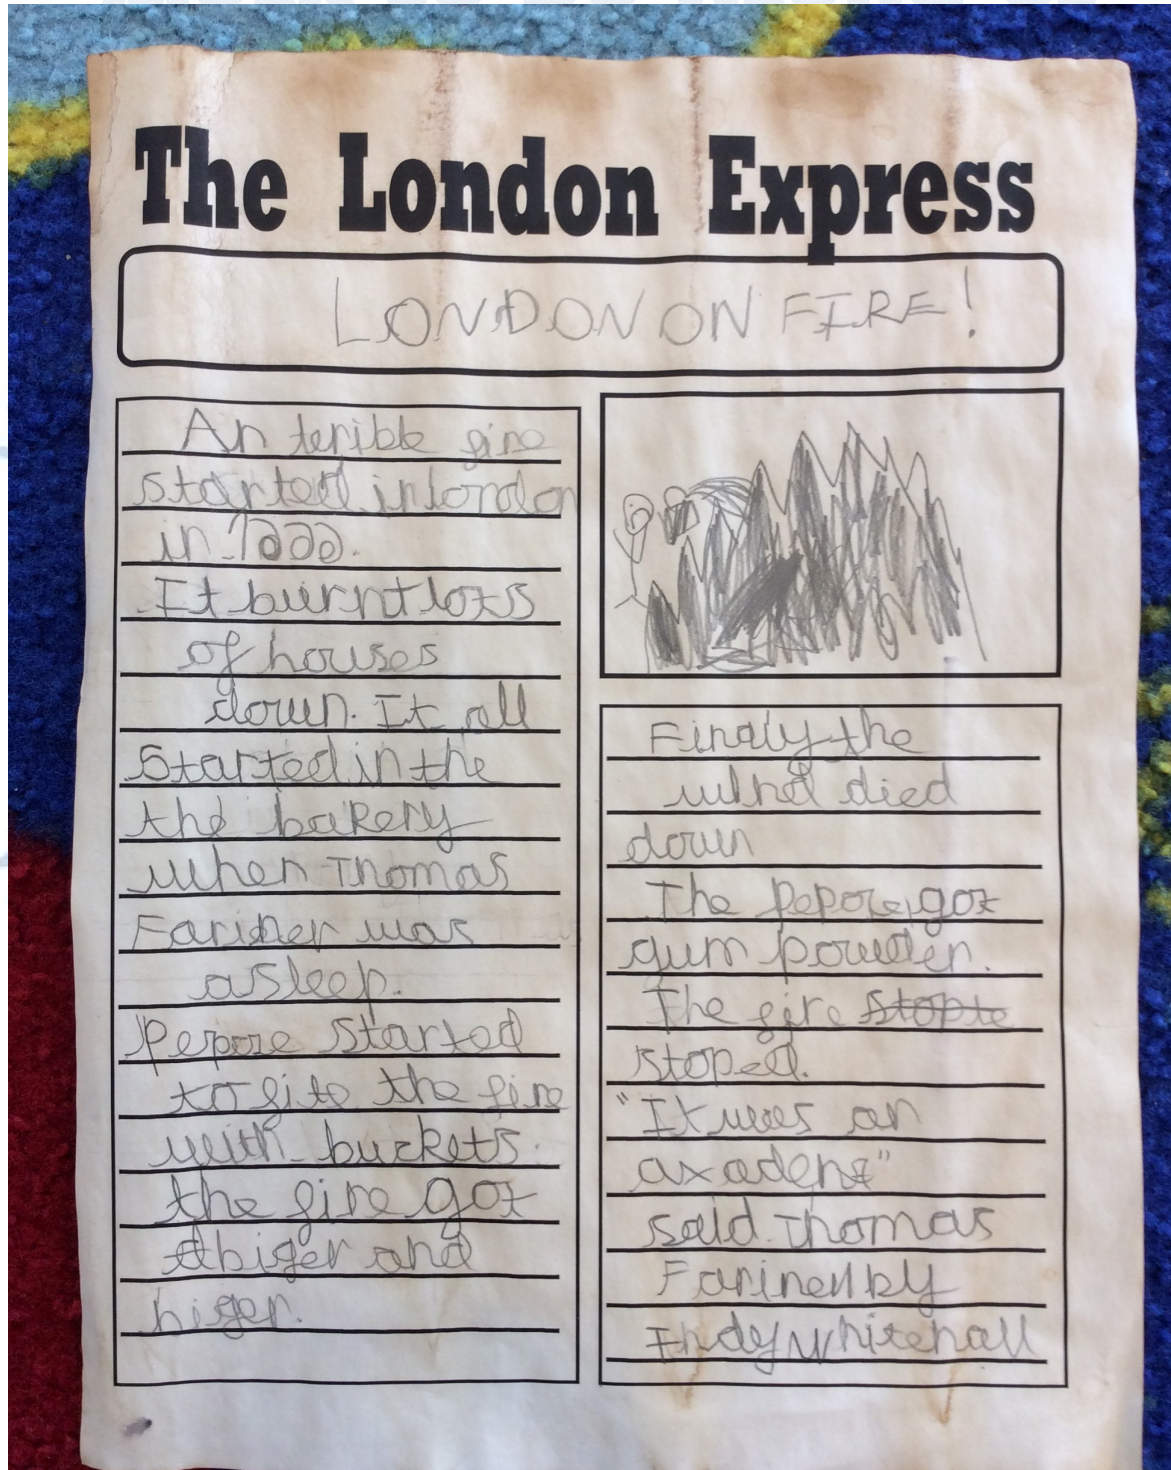 The London Express
LONDON ON FIRE!
An terible fire
started in london
in 1666.
It burnt lots
of houses
down. It all
Started in the
the bakery
when Thomas
Fariner was
asleep.
Pepore started
to fite the fire
with buckets.
the fire got
biger and
biger.
Finaly the
wind died
down
The Pepore got
gum powder.
The fire stopte
stoped.
"It was an
axadent"
said Thomas
Fariner by
Indy Whitehall